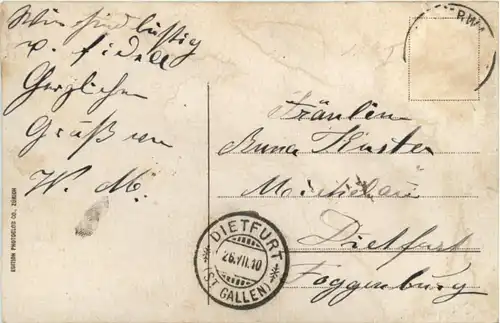 Wir sind lustig
u. fidell
Herzlichen
Gruß von
W. M.
EDITION PHOTOGLOB CO., ZÜRICH
Fräulein
Anna Kuster
Dietfurt
Toggenburg
DIETFURT
26.VII.10
(ST. GALLEN)